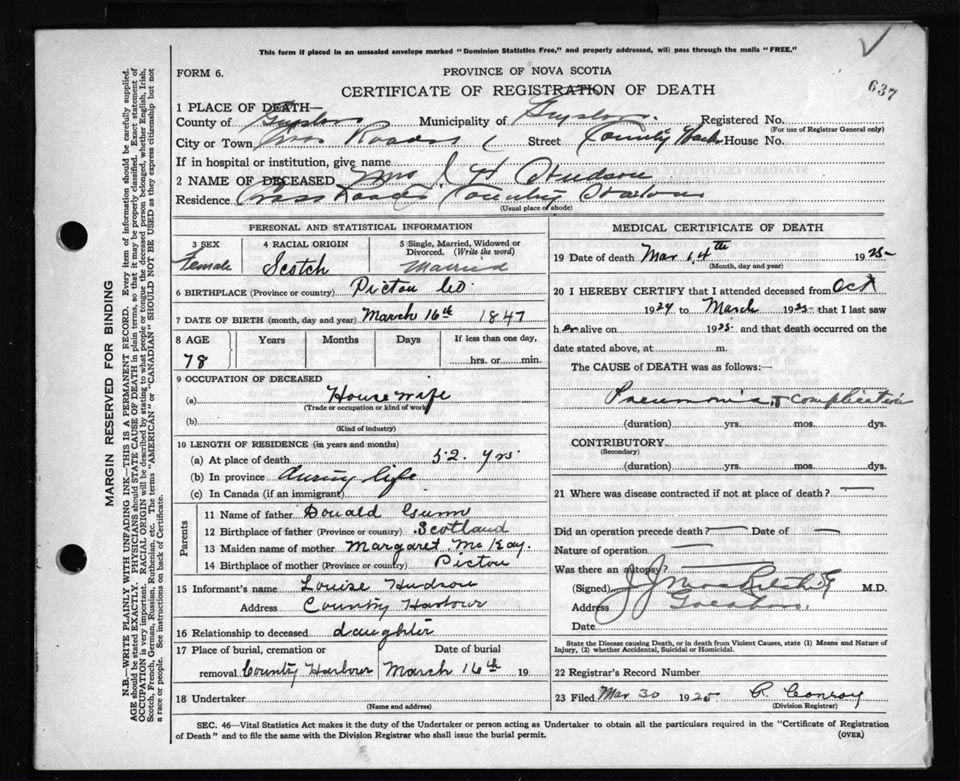 This form if placed in an unsealed envelope marked "Dominion Statistics Free," and properly addressed, will pass through the mails "FREE."
637
FORM 6.
PROVINCE OF NOVA SCOTIA
CERTIFICATE OF REGISTRATION OF DEATH
1 PLACE OF DEATH—
County of Guysboro Municipality of Guysboro Registered No.
(For use of Registrar General only)
City or Town Cross Roads Street County Harb House No.
If in hospital or institution, give name
2 NAME OF DECEASED Mrs J H Hudson
Residence Cross Roads Country Harbour
(Usual place of abode)
PERSONAL AND STATISTICAL INFORMATION
3 SEX
Female
4 RACIAL ORIGIN
Scotch
5 Single, Married, Widowed or
Divorced. (Write the word)
Married
6 BIRTHPLACE (Province or country) Pictou Co.
7 DATE OF BIRTH (month, day and year) March 16th 1847
8 AGE Years Months Days If less than one day,
78 hrs. or min.
9 OCCUPATION OF DECEASED
(a) House wife
(Trade or occupation or kind of work)
(b)
(Kind of industry)
10 LENGTH OF RESIDENCE (in years and months)
(a) At place of death 52. yrs
(b) In province during life
(c) In Canada (if an immigrant)
Parents
11 Name of father Donald Gunn
12 Birthplace of father (Province or country) Scotland
13 Maiden name of mother Margaret McKay.
14 Birthplace of mother (Province or country) Pictou
15 Informant's name Louise Hudson
Address Country Harbour
16 Relationship to deceased daughter
17 Place of burial, cremation or Date of burial
removal County Harbour March 16th 19
18 Undertaker
(Name and address)
MEDICAL CERTIFICATE OF DEATH
19 Date of death Mar 14th 1925
(Month, day and year)
20 I HEREBY CERTIFY that I attended deceased from Oct
1924 to March 1925 that I last saw
her alive on 1925 and that death occurred on the
date stated above, at m.
The CAUSE of DEATH was as follows:—
Pneumonia & complication
(duration) yrs. mos. dys.
CONTRIBUTORY
(Secondary)
(duration) yrs. mos. dys.
21 Where was disease contracted if not at place of death?
Did an operation precede death? Date of
Nature of operation
Was there an autopsy?
(Signed) M.D.
Address
Date
State the Disease causing Death, or in death from Violent Causes, state (1) Means and Nature of
Injury, (2) whether Accidental, Suicidal or Homicidal.
22 Registrar's Record Number
23 Filed Mar 30 1925 R. Conroy
(Division Registrar)
SEC. 46—Vital Statistics Act makes it the duty of the Undertaker or person acting as Undertaker to obtain all the particulars required in the "Certificate of Registration
of Death" and to file the same with the Division Registrar who shall issue the burial permit.
(OVER)
MARGIN RESERVED FOR BINDING
N.B.—WRITE PLAINLY WITH UNFADING INK—THIS IS A PERMANENT RECORD. Every item of information should be carefully supplied.
AGE should be stated EXACTLY. PHYSICIANS should STATE CAUSE OF DEATH in plain terms, so that it may be properly classified. Exact statement of
OCCUPATION is very important. RACIAL ORIGIN will be described by stating to what people or tongue the deceased person belonged, whether English, Irish,
Scotch, French, German, Russian, Ruthenian, etc. The terms "AMERICAN" or "CANADIAN" SHOULD NOT BE USED as they express citizenship but not
a race or people. See instructions on back of Certificate.